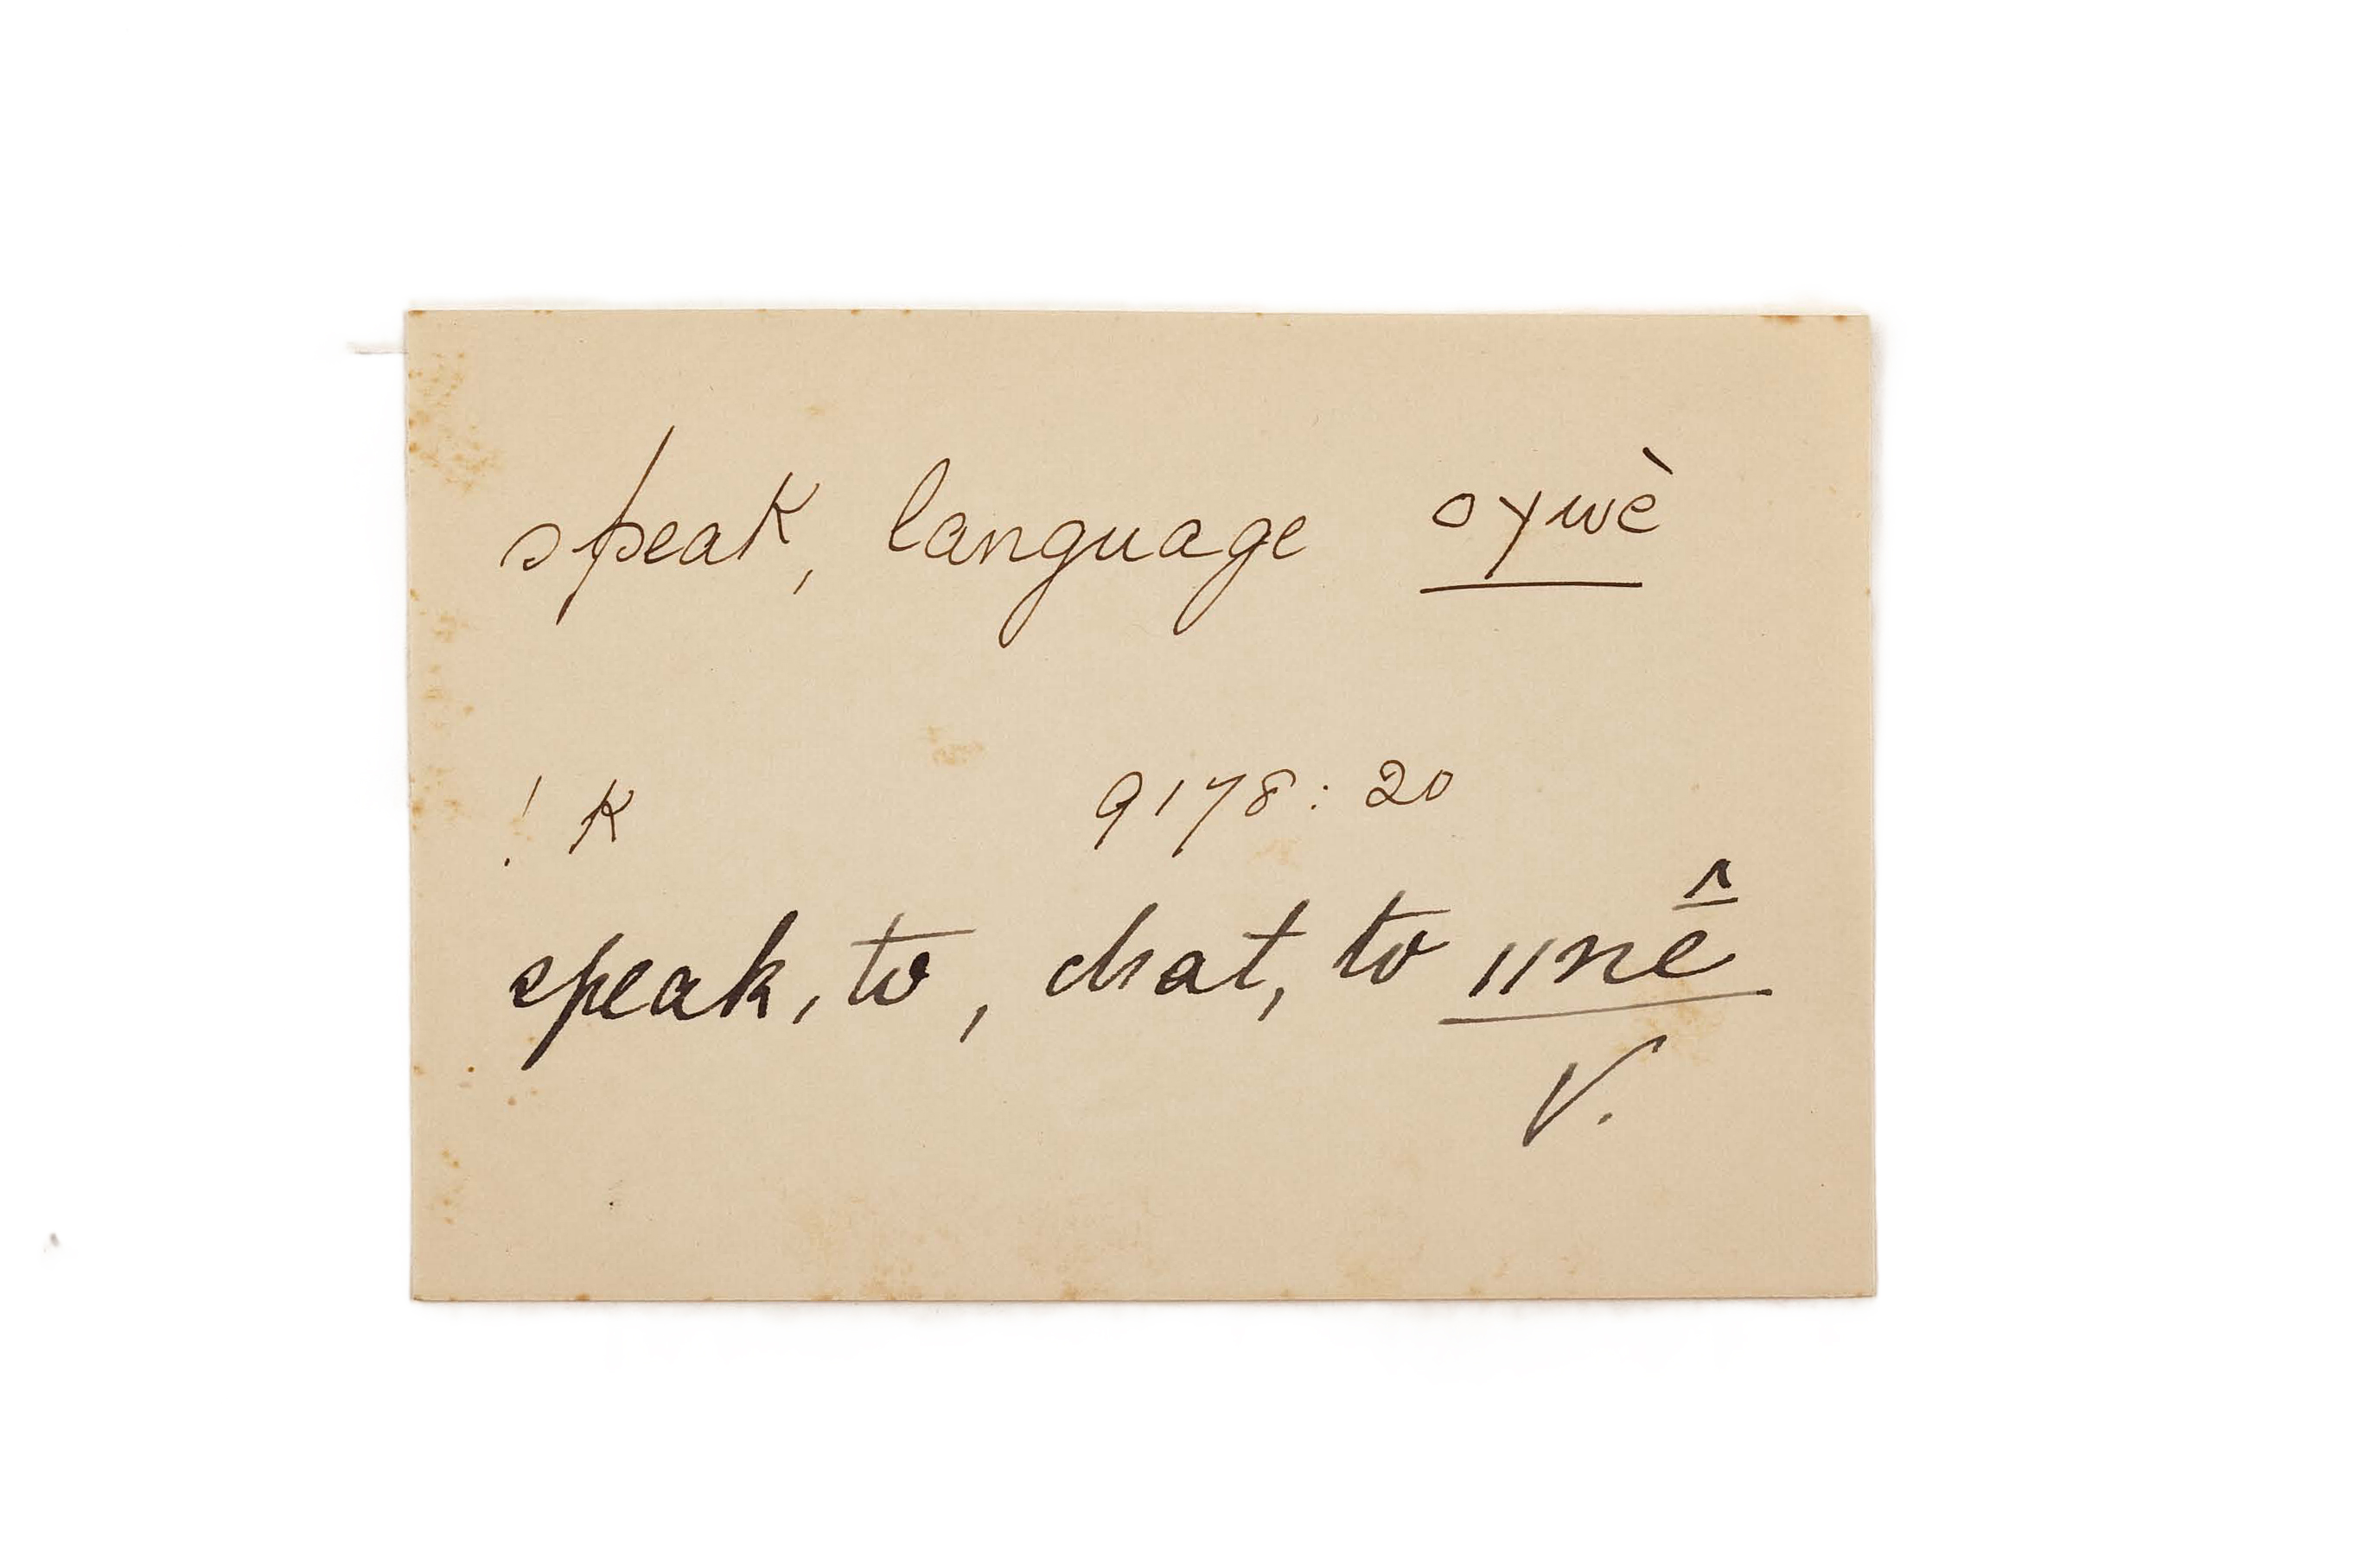 speak, language oywè
! K 9178:20
speak, to, chat, to ǁnē̂
V.